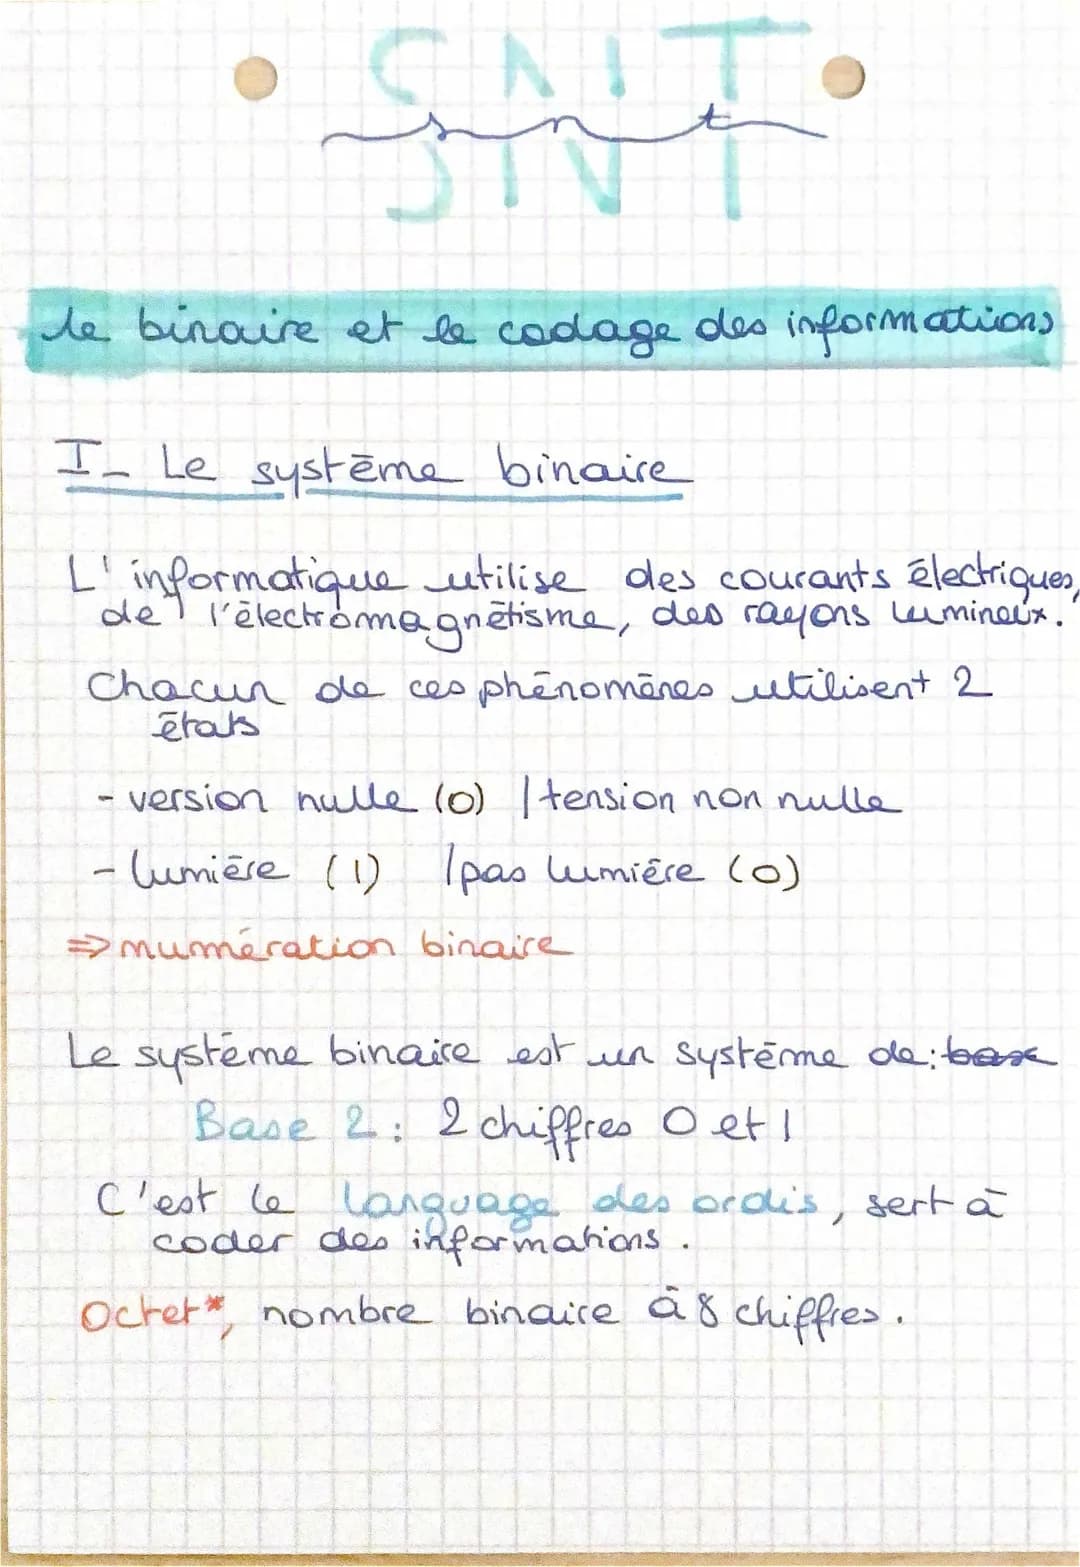 SNT
snt
le binaire et le codage des informations
I- Le système binaire
L'informatique utilise des courants électriques,
de l'électromagnétisme, des rayons lumineux.
Chacun de ces phénomènes utilisent 2
états
- version nulle (0) / tension non nulle
- lumière (1) / pas lumière (0)
⇒ numération binaire
Le système binaire est un système de: base
Base 2: 2 chiffres 0 et 1
C'est le language des ordis, sert à
coder des informations.
Octet*, nombre binaire à 8 chiffres.